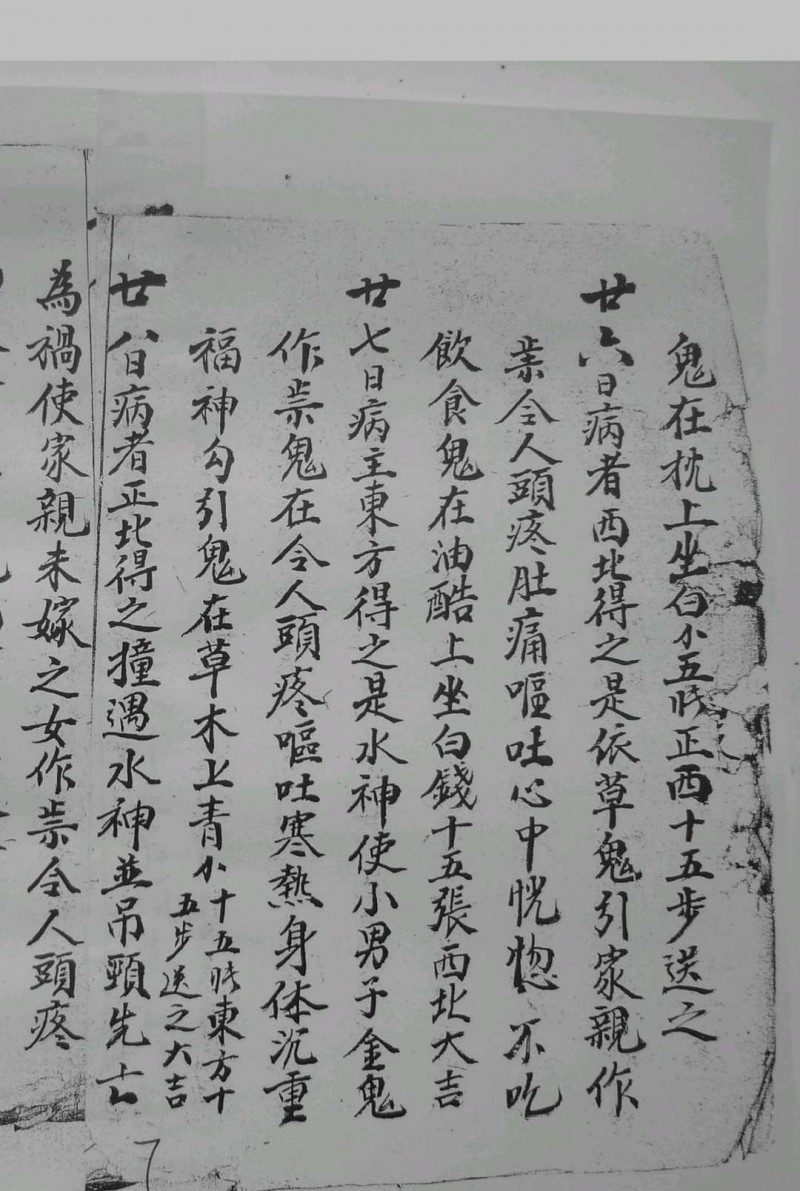 鬼在枕上坐白小五張正西十五步送之
廿六日病者西北得之是依草鬼引家親作
祟令人頭疼肚痛嘔吐心中恍惚不吃
飲食鬼在油酷上坐白錢十五張西北大吉
廿七日病主東方得之是水神使小男子金鬼
作祟鬼在令人頭疼嘔吐寒熱身体沉重
福神勾引鬼在草木上青小十五張東方十
五步送之大吉
廿八日病者正北得之撞遇水神並吊頸先亡
為禍使家親未嫁之女作祟令人頭疼